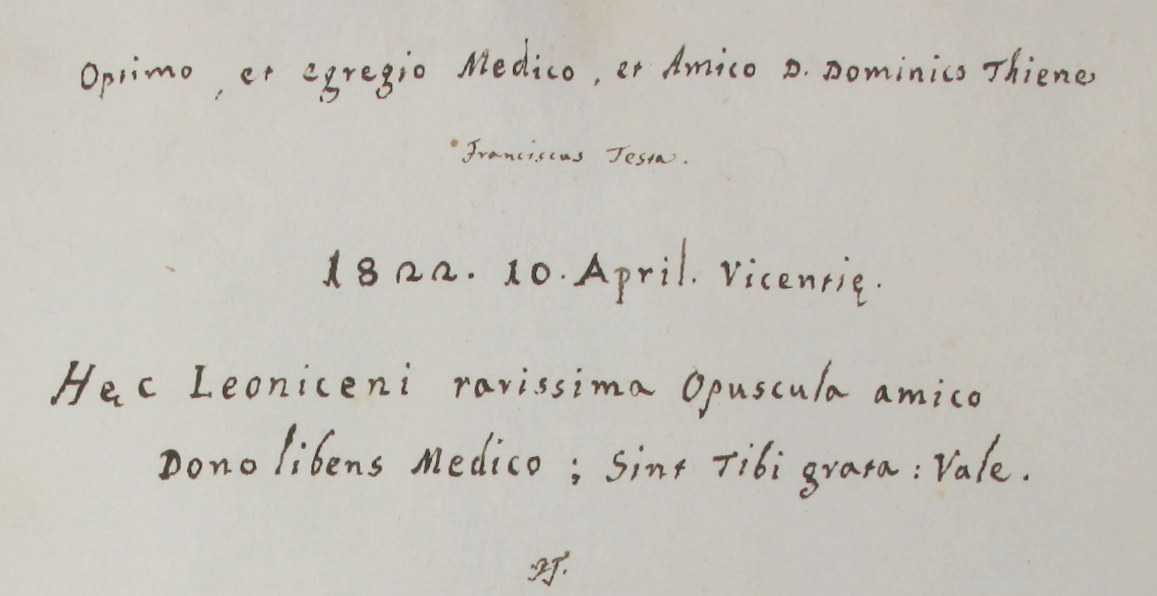 Optimo, et egregio Medico, et Amico D. Dominico Thiene
Franciscus Testa.
1822. 10. April. Vicentię.
Hęc Leoniceni rarissima Opuscula amico
Dono libens Medico; Sint Tibi grata: Vale.
FT.